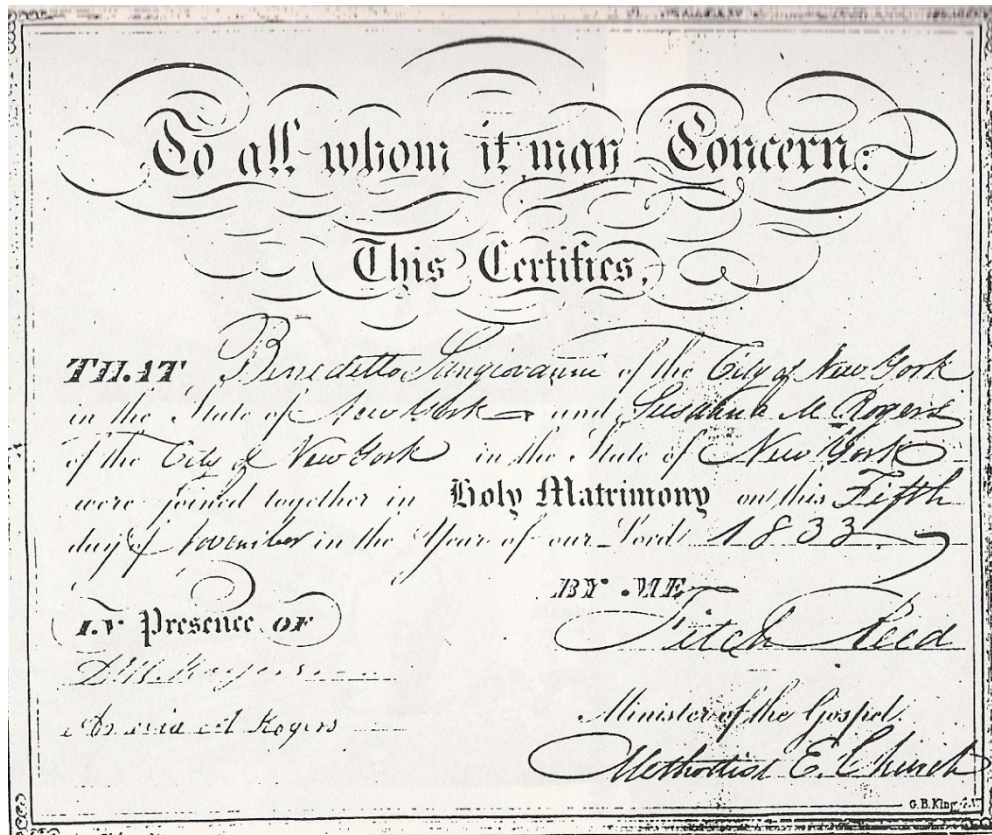 To all whom it may Concern:
This Certifies,
THAT Benedetto Sangiovanni of the City of New York
in the State of New York and Susanna M Rogers
of the City of New York in the State of New York
were joined together in Holy Matrimony on this Fifth
day of November in the Year of our Lord 1833
BY ME
IN Presence OF
Fitch Reed
Rogers
Rogers
Minister of the Gospel.
Methodist E. Church
G.B. King